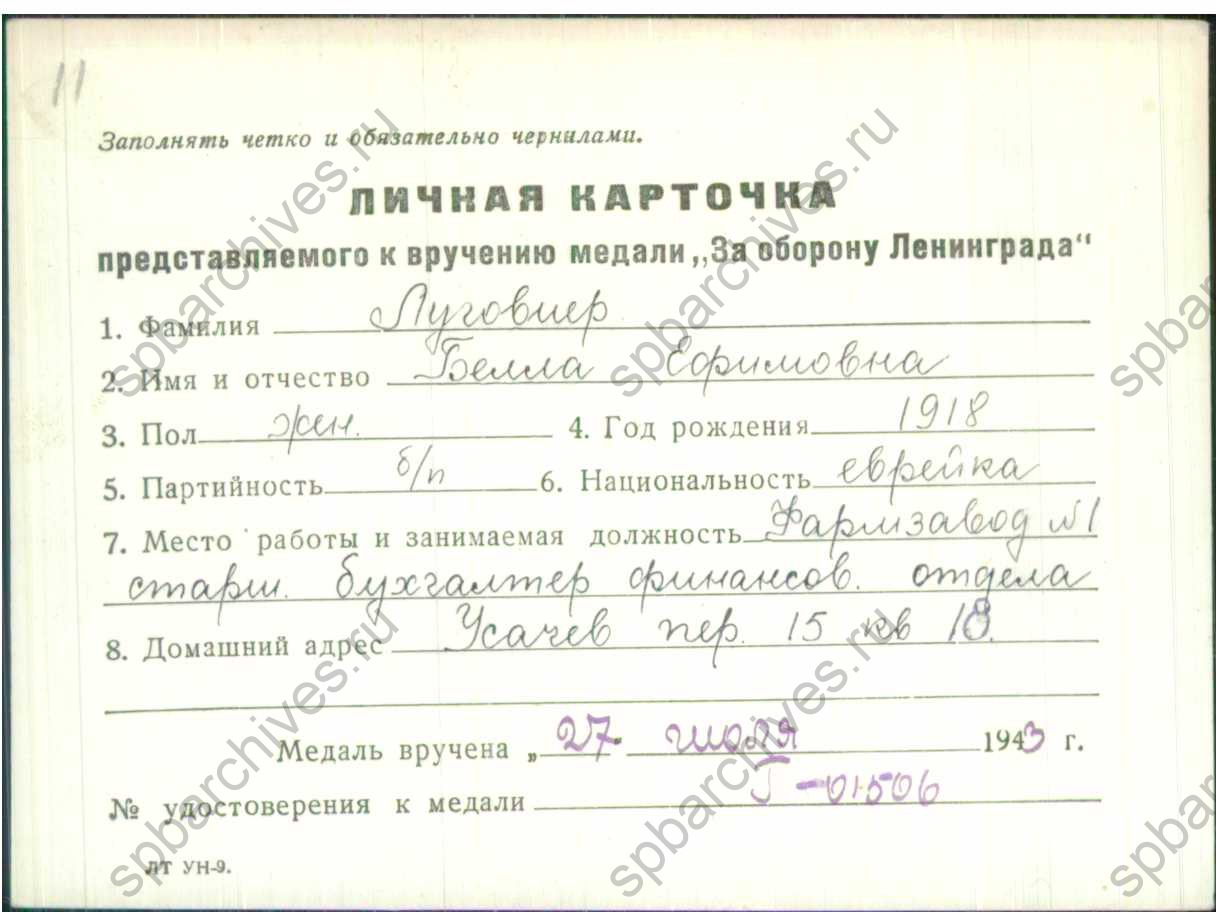 11
Заполнять четко и обязательно чернилами.
ЛИЧНАЯ КАРТОЧКА
представляемого к вручению медали „За оборону Ленинграда“
1. Фамилия Луговиер
2. Имя и отчество Белла Ефимовна
3. Пол жен. 4. Год рождения 1918
5. Партийность б/п 6. Национальность еврейка
7. Место работы и занимаемая должность Фармзавод №1
старш. бухгалтер финансов. отдела
8. Домашний адрес Усачев пер. 15 кв 18.
Медаль вручена „27“ июля 1943 г.
№ удостоверения к медали Г-01506
ЛТ УН-9.
spbarchives.ru
spbarchives.ru
spbarchives.ru
spbarchives.ru